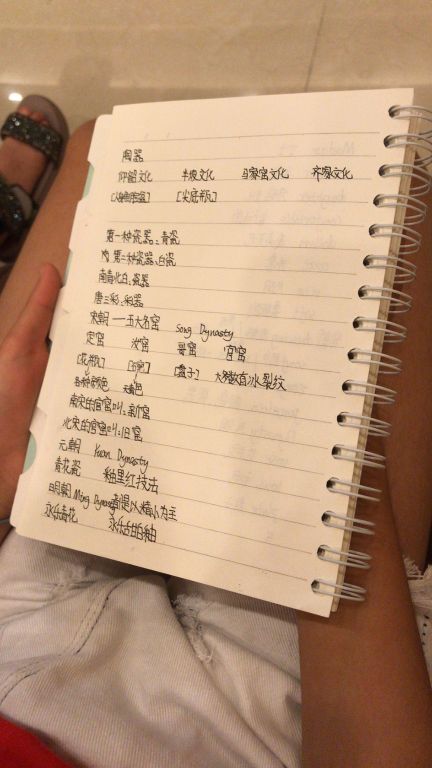 陶器
仰韶文化 半坡文化 马家窑文化 齐家文化
[尖底瓶]
第一种瓷器:青瓷
第二种瓷器:白瓷
南青北白:瓷器
唐三彩:彩器
宋朝——五大名窑 Song Dynasty
定窑 汝窑 哥窑 官窑
[盘子] 冰裂纹
各种颜色 天青色
南宋的官窑叫:新窑
北宋的官窑叫:旧窑
元朝 Yuan Dynasty
青花瓷 釉里红技法
明朝 Ming Dynasty 为主
永乐青花 永乐甜白釉